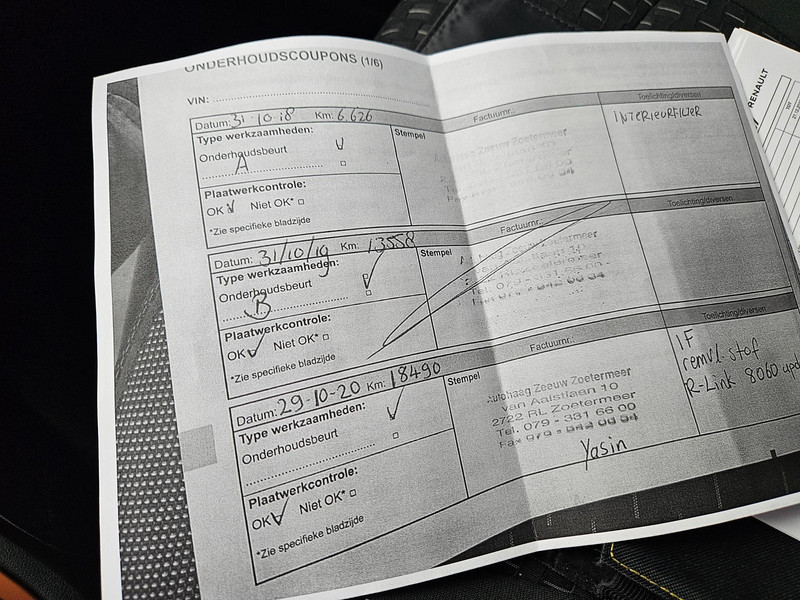 ONDERHOUDSCOUPONS (1/6)
VIN:
RENAULT
Datum: 31-10-18 Km: 6.626
Factuurnr.:
Toelichting/diversen
Type werkzaamheden:
Stempel
Onderhoudsbeurt
A
INTERIEURFILTER
Autohaag Zeeuw Zoetermeer
Plaatwerkcontrole:
OK Niet OK*
*Zie specifieke bladzijde
Datum: 31/10/19 Km: 13558
Factuurnr.:
Toelichting/diversen
Type werkzaamheden:
Stempel
Onderhoudsbeurt
B
Zeeuw Zoetermeer
Plaatwerkcontrole:
OK Niet OK*
*Zie specifieke bladzijde
Datum: 29-10-20 Km: 18490
Factuurnr.:
Toelichting/diversen
Type werkzaamheden:
Stempel
Onderhoudsbeurt
Autohaag Zeeuw Zoetermeer
van Aalstlaan 10
2722 RL Zoetermeer
Tel. 079 - 331 66 00
Fax 079 - 342 00 34
Yasin
IF
remvl. stof
R-Link 8060 upd
Plaatwerkcontrole:
OK Niet OK*
*Zie specifieke bladzijde